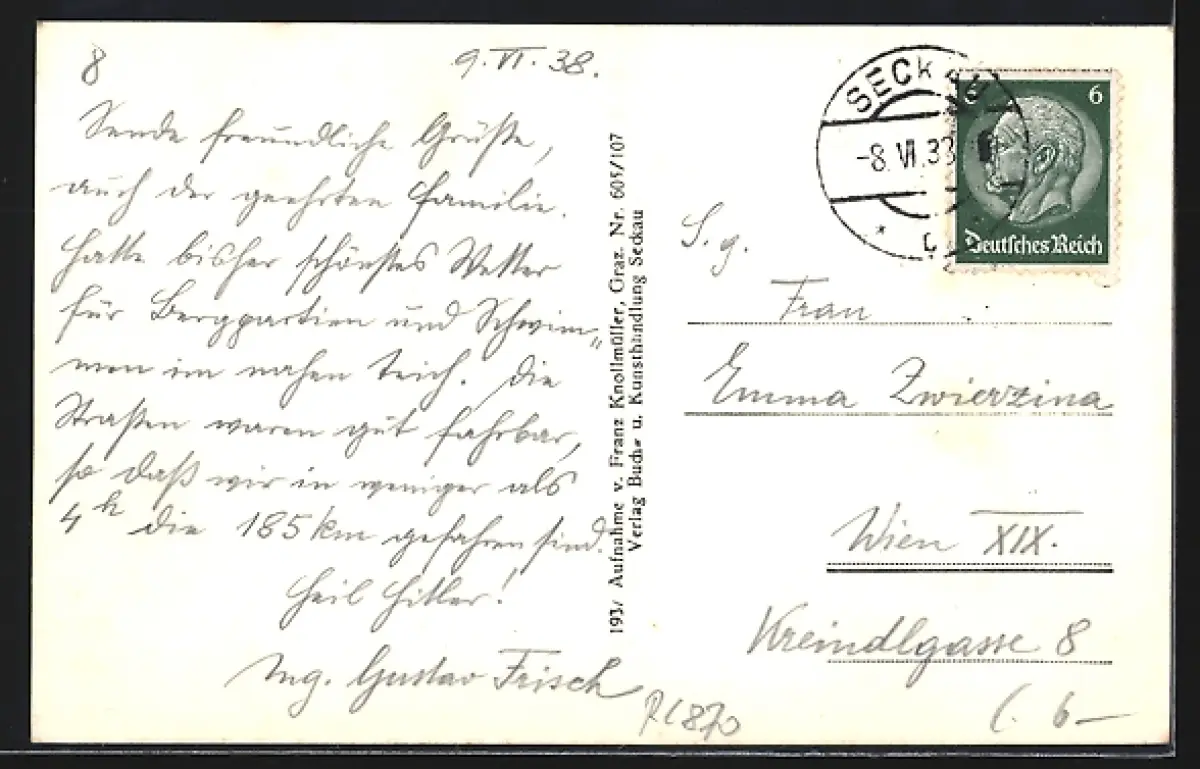 8
9. VI. 38.
Sende freundliche Grüße,
auch der geehrten Familie.
Hatte bisher schönstes Wetter
für Bergpartien und Schwim„
men im nahen Teich. Die
Straßen waren gut fahrbar,
so daß wir in weniger als
4h die 185 km gefahren sind.
Heil Hitler!
Ing. Gustav Frisch
1937 Aufnahme v. Franz Knollmüller, Graz. Nr. 605/107
Verlag Buch- u. Kunsthandlung Seckau
SECKAU
-8. VI. 38
6 6
Deutsches Reich
S. g.
Frau
Emma Zwierzina
Wien XIX.
Kreindlgasse 8
6-